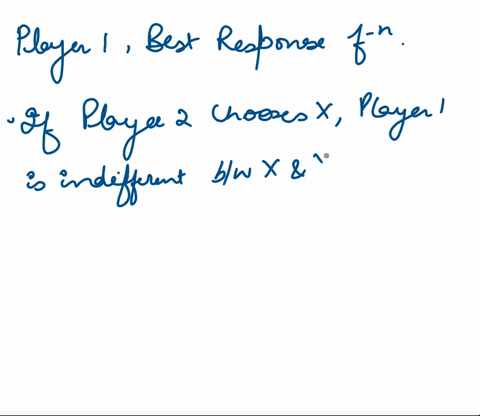 Player 1, Best Response f-n.
. If Player 2 chooses X, Player 1
is indifferent b/w X &